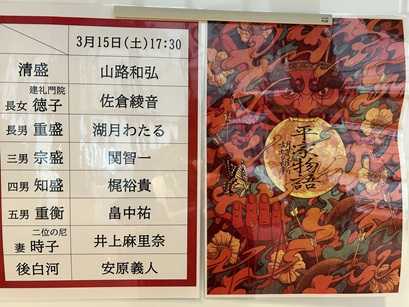 3月15日(土)17:30
清盛 山路和弘
建礼門院
長女 徳子 佐倉綾音
長男 重盛 湖月わたる
三男 宗盛 関智一
四男 知盛 梶裕貴
五男 重衡 畠中祐
二位の尼
妻 時子 井上麻里奈
後白河 安原義人
平家物語
胡蝶